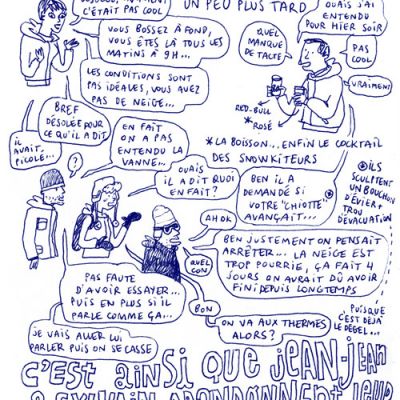 C'ÉTAIT PAS COOL
UN PEU PLUS TARD
OUAIS J'AI
ENTENDU
POUR HIER SOIR
VOUS BOSSEZ À FOND,
VOUS ÊTES LÀ TOUS LES
MATINS À 9H...
QUEL
MANQUE
DE TACTE
PAS
COOL
VRAIMENT
LES CONDITIONS SONT
PAS IDÉALES, VOUS AVEZ
PAS DE NEIGE...
RED-BULL
*
ROSÉ
BREF
DÉSOLÉE POUR
CE QU'IL A DIT
IL
AVAIT
PICOLÉ...
?
EN FAIT
ON A PAS
ENTENDU LA
VANNE...
*LA BOISSON... ENFIN LE COCKTAIL
DES SNOWKITEURS
OUAIS
IL A DIT QUOI
EN FAIT?
BEN IL A
DEMANDÉ SI
VOTRE "CHIOTTE"
AVANÇAIT...
ILS
SCULPTENT
UN BOUCHON
D'ÉVIER +
TROU
D'ÉVACUATION
AH OK
QUEL
CON
BEN JUSTEMENT ON PENSAIT
ARRÊTER... LA NEIGE EST
TROP POURRIE, ÇA FAIT 4
JOURS ON AURAIT DÛ AVOIR
FINI DEPUIS LONGTEMPS
PAS FAUTE
D'AVOIR ESSAYER...
PUIS EN PLUS SI IL
PARLE COMME ÇA...
BON
PUISQUE
C'EST DÉJÀ
LE DÉGEL...
ON VA AUX THERMES
ALORS?
JE VAIS ALLER LUI
PARLER PUIS ON SE CASSE
C'EST AINSI QUE JEAN-JEAN
& SYLVAIN ABANDONNENT LEUR